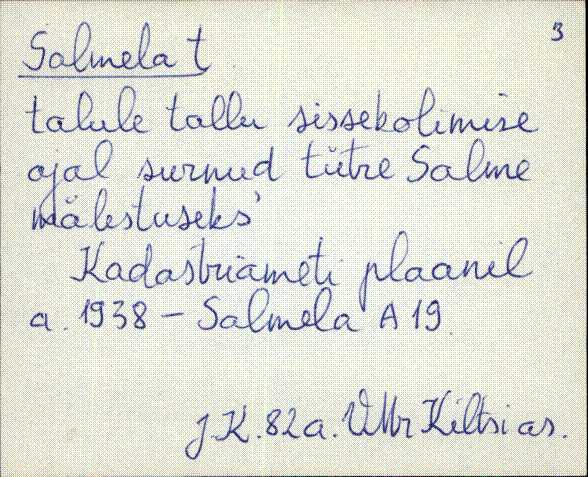 3
Salmela t
talule tallu sissekolimise
ajal surnud tütre Salme
mälestuseks'
Kadastriameti plaanil
a. 1938 - Salmela A 19
J.K. 82a. VMr Kiltsi as.